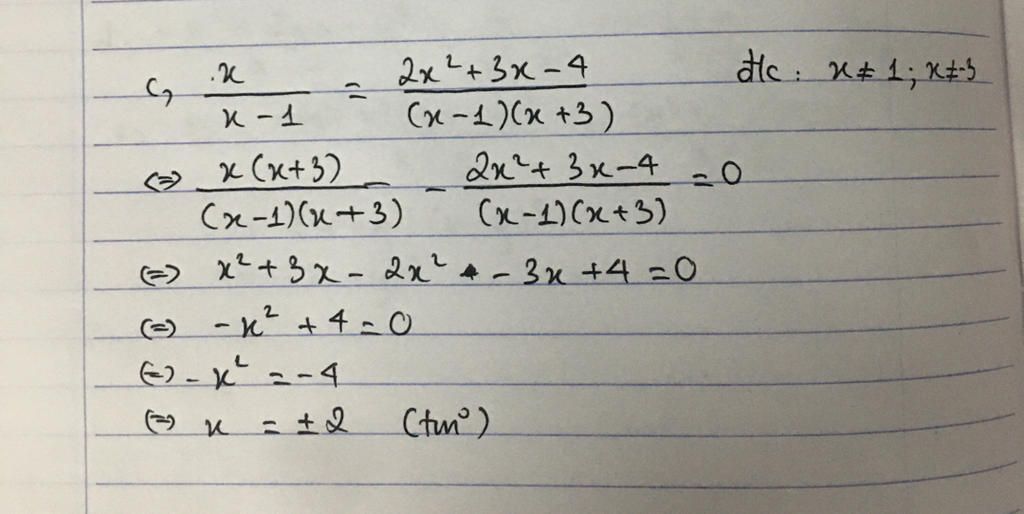 c, x/(x-1) = (2x²+3x-4)/((x-1)(x+3)) đk: x≠1; x≠-3
⇔ x(x+3)/((x-1)(x+3)) - (2x²+3x-4)/((x-1)(x+3)) = 0
⇔ x²+3x-2x²-3x+4=0
⇔ -x²+4=0
⇔ -x²=-4
⇔ x=±2 (tm)